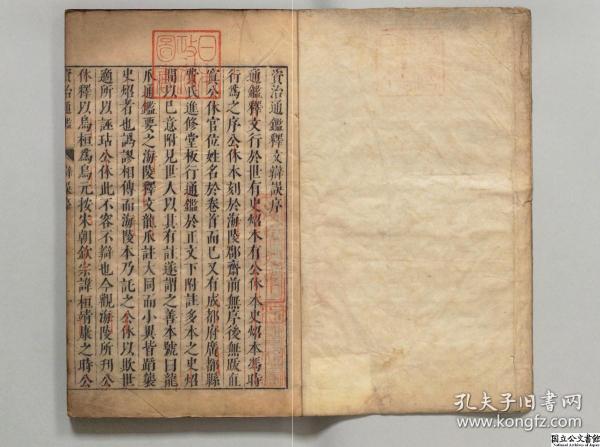 資治通鑑釋文辯誤序
通鑑釋文行於世有史炤本有公休本史炤本馮時
行爲之序公休本刻於海陵郡齋前無序後無跋直
寘公休官位姓名於卷首而已又有成都府廣都縣
費氏進修堂板行通鑑於正文下附註多本之史炤
間以己意附見世人以其有註遂謂之善本號曰龍
爪通鑑要之海陵釋文龍爪註大同而小異皆蹈襲
史炤者也譌謬相傳而海陵本乃託之公休以欺世
適所以誣玷公休此不容不辯也今觀海陵所刊公
休釋以烏桓爲烏元按宋朝欽宗諱桓靖康之時公
資治通鑑
辯誤序
孔夫子旧书网
国立公文書館
National Archives of Japan